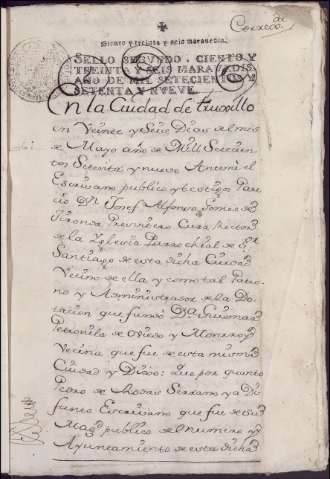 Ciento y treinta y seis maravedis.
SELLO SEGVNDO, CIENTO Y
TREINTA Y SEIS MARAVEDIS,
AÑO DE MIL SETECIENTOS Y
SETENTA Y NVEVE.
En la Ciudad de Truxillo
en Veinte y Seis Dias del mes
de Mayo año de Mill Setecien
tos Setenta y nueve Antemi el
Escrivano publico y testigos Pare
cio Dn. Josef Alfonso Gomez de
Presvitero Cura Rector
de la Yglesia Parrochial de Sr.
Santiago de esta dicha Ciudad
Vecino de ella y como tal Patro
no y Administrador de la Do
tacion que fundó Da.
Petronila de Ovíedo y Monrroy
Vecina que fue de esta misma
Ciudad y Dixo: que por quanto
Pedro de Rodas Serrano ya Di
funto Escrivano que fue de Su
Magd. publico del numero y
Ayuntamiento de esta dicha